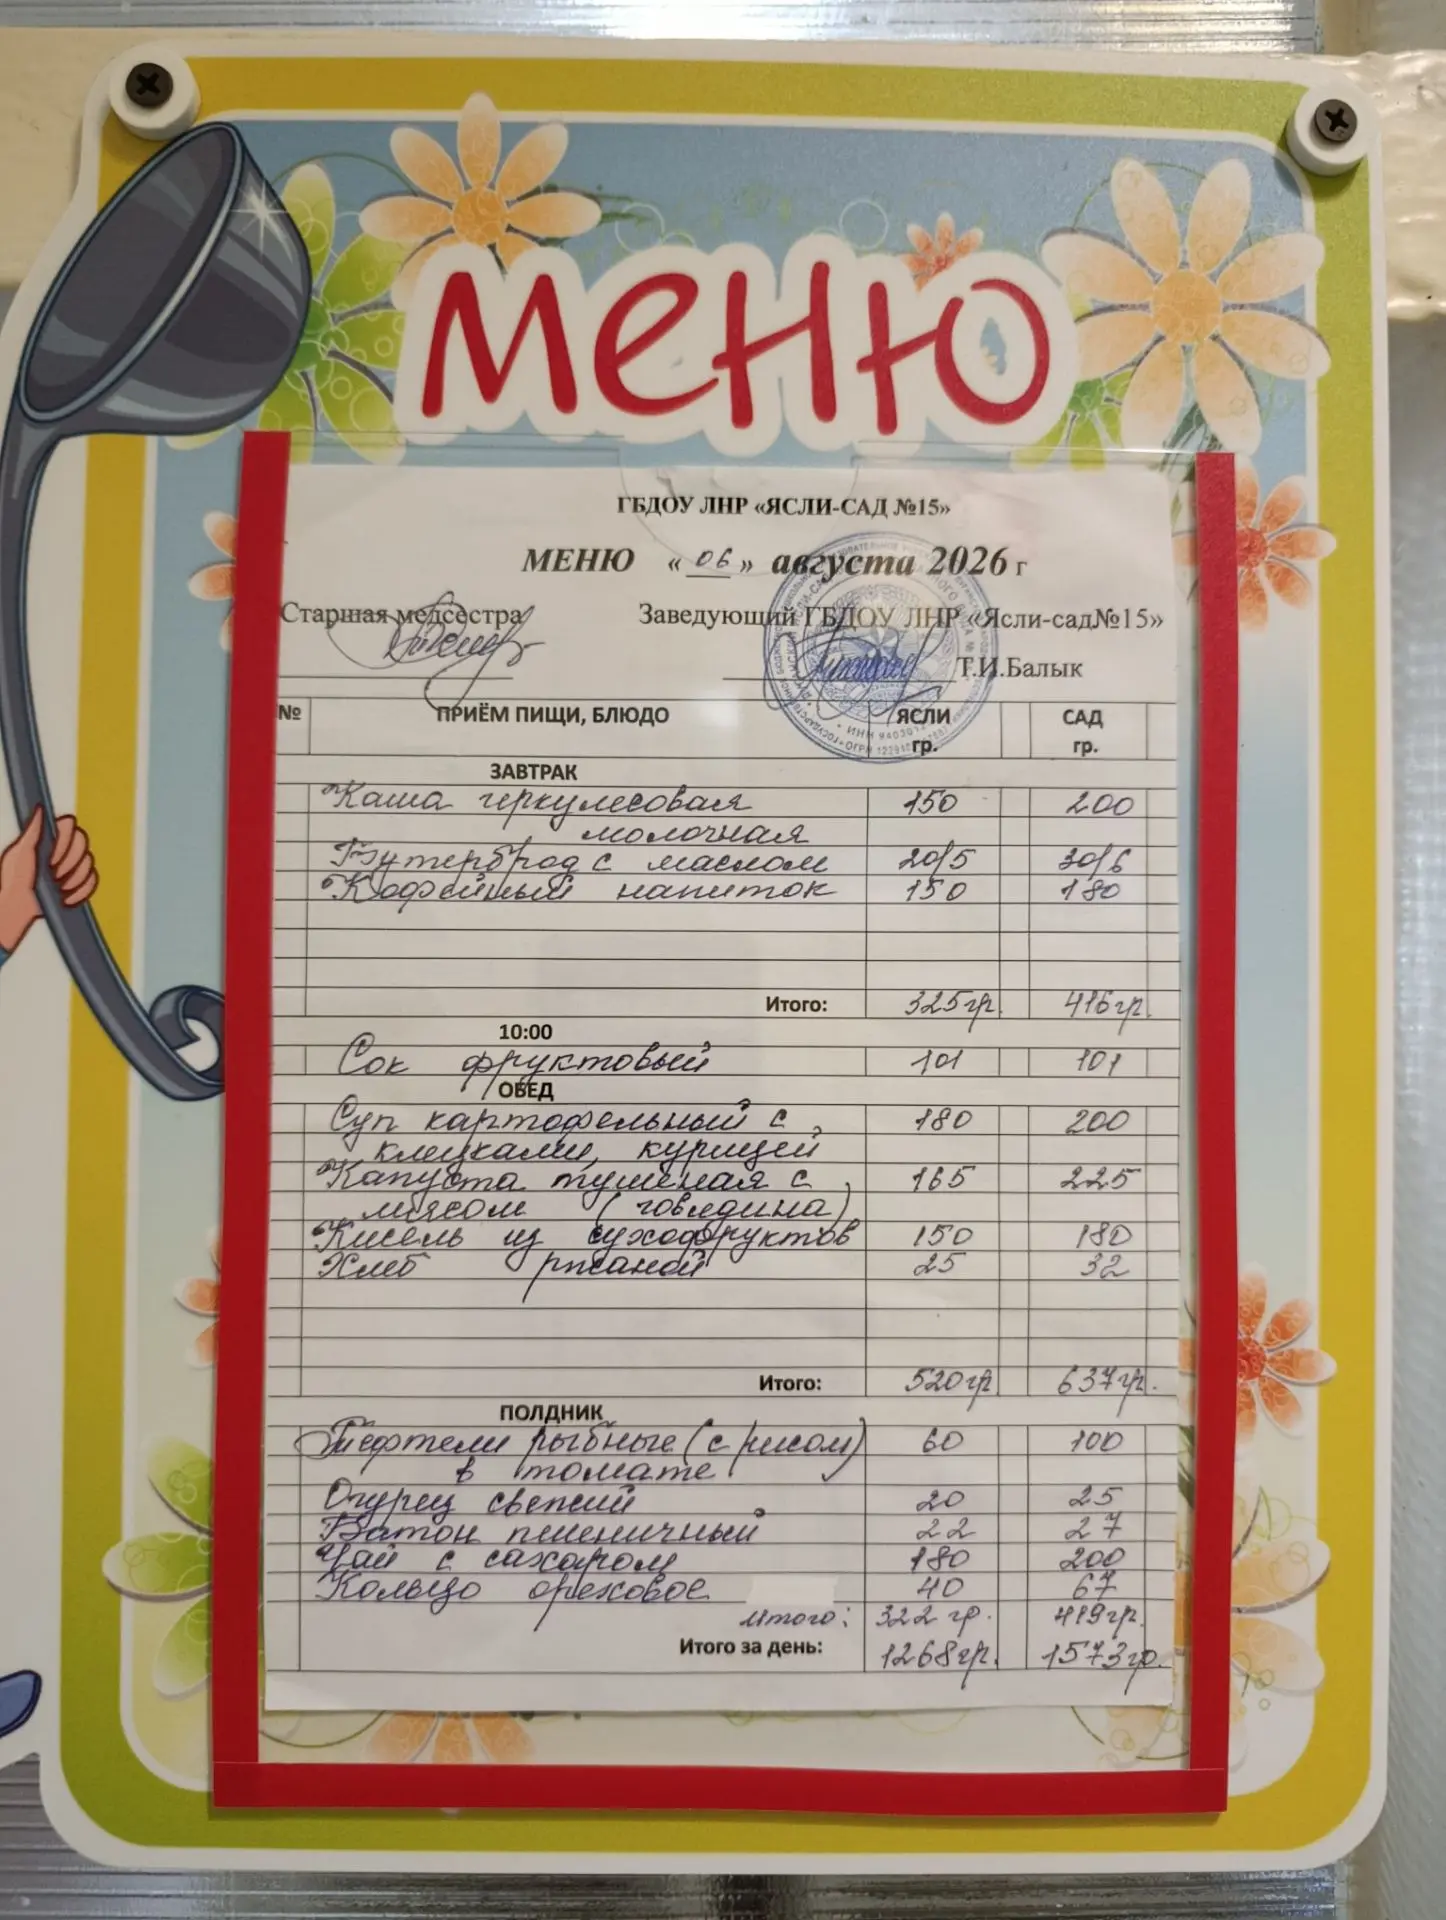 меню
ГБДОУ ЛНР «ЯСЛИ-САД №15»
МЕНЮ « 06 » августа 2026 г
Старшая медсестра Заведующий ГБДОУ ЛНР «Ясли-сад№15»
Т.И.Балык
№ ПРИЁМ ПИЩИ, БЛЮДО ЯСЛИ САД
гр. гр.
ЗАВТРАК
Каша геркулесовая 150 200
молочная
Бутерброд с маслом 20/5 30/6
Кофейный напиток 150 180
Итого: 325гр. 416гр.
10:00
Сок фруктовый 101 101
ОБЕД
Суп картофельный с 180 200
клецками, курицей
Капуста тушеная с 165 225
мясом (говядина)
Кисель из сухофруктов 150 180
Хлеб ржаной 25 32
Итого: 520гр. 637гр.
ПОЛДНИК
Тефтели рыбные (с рисом) 60 100
в томате
Огурец свежий 20 25
Батон пшеничный 22 27
Чай с сахаром 180 200
Кольцо ореховое 40 67
Итого: 322 гр. 419гр.
Итого за день: 1268гр. 1573гр.